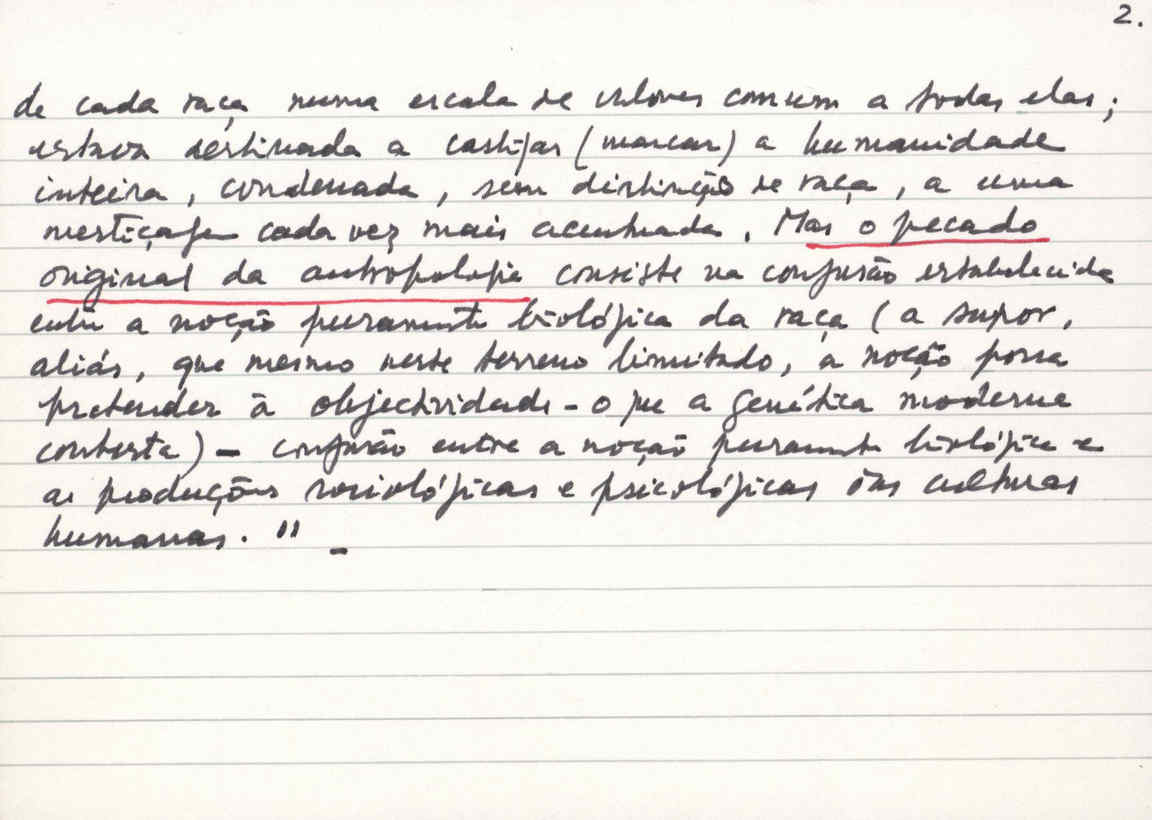 2.
de cada raça numa escala de valores comum a todas elas;
estava destinada a castigar (marcar) a humanidade
inteira, condenada, sem distinção de raça, a uma
mestiçagem cada vez mais acentuada. Mas o pecado
original da antropologia consiste na confusão estabelecida
entre a noção puramente biológica da raça (a supor,
aliás, que mesmo neste terreno limitado, a noção possa
pretender à objectividade - o que a genética moderna
contesta) - confusão entre a noção puramente biológica e
as produções sociológicas e psicológicas das culturas
humanas." -